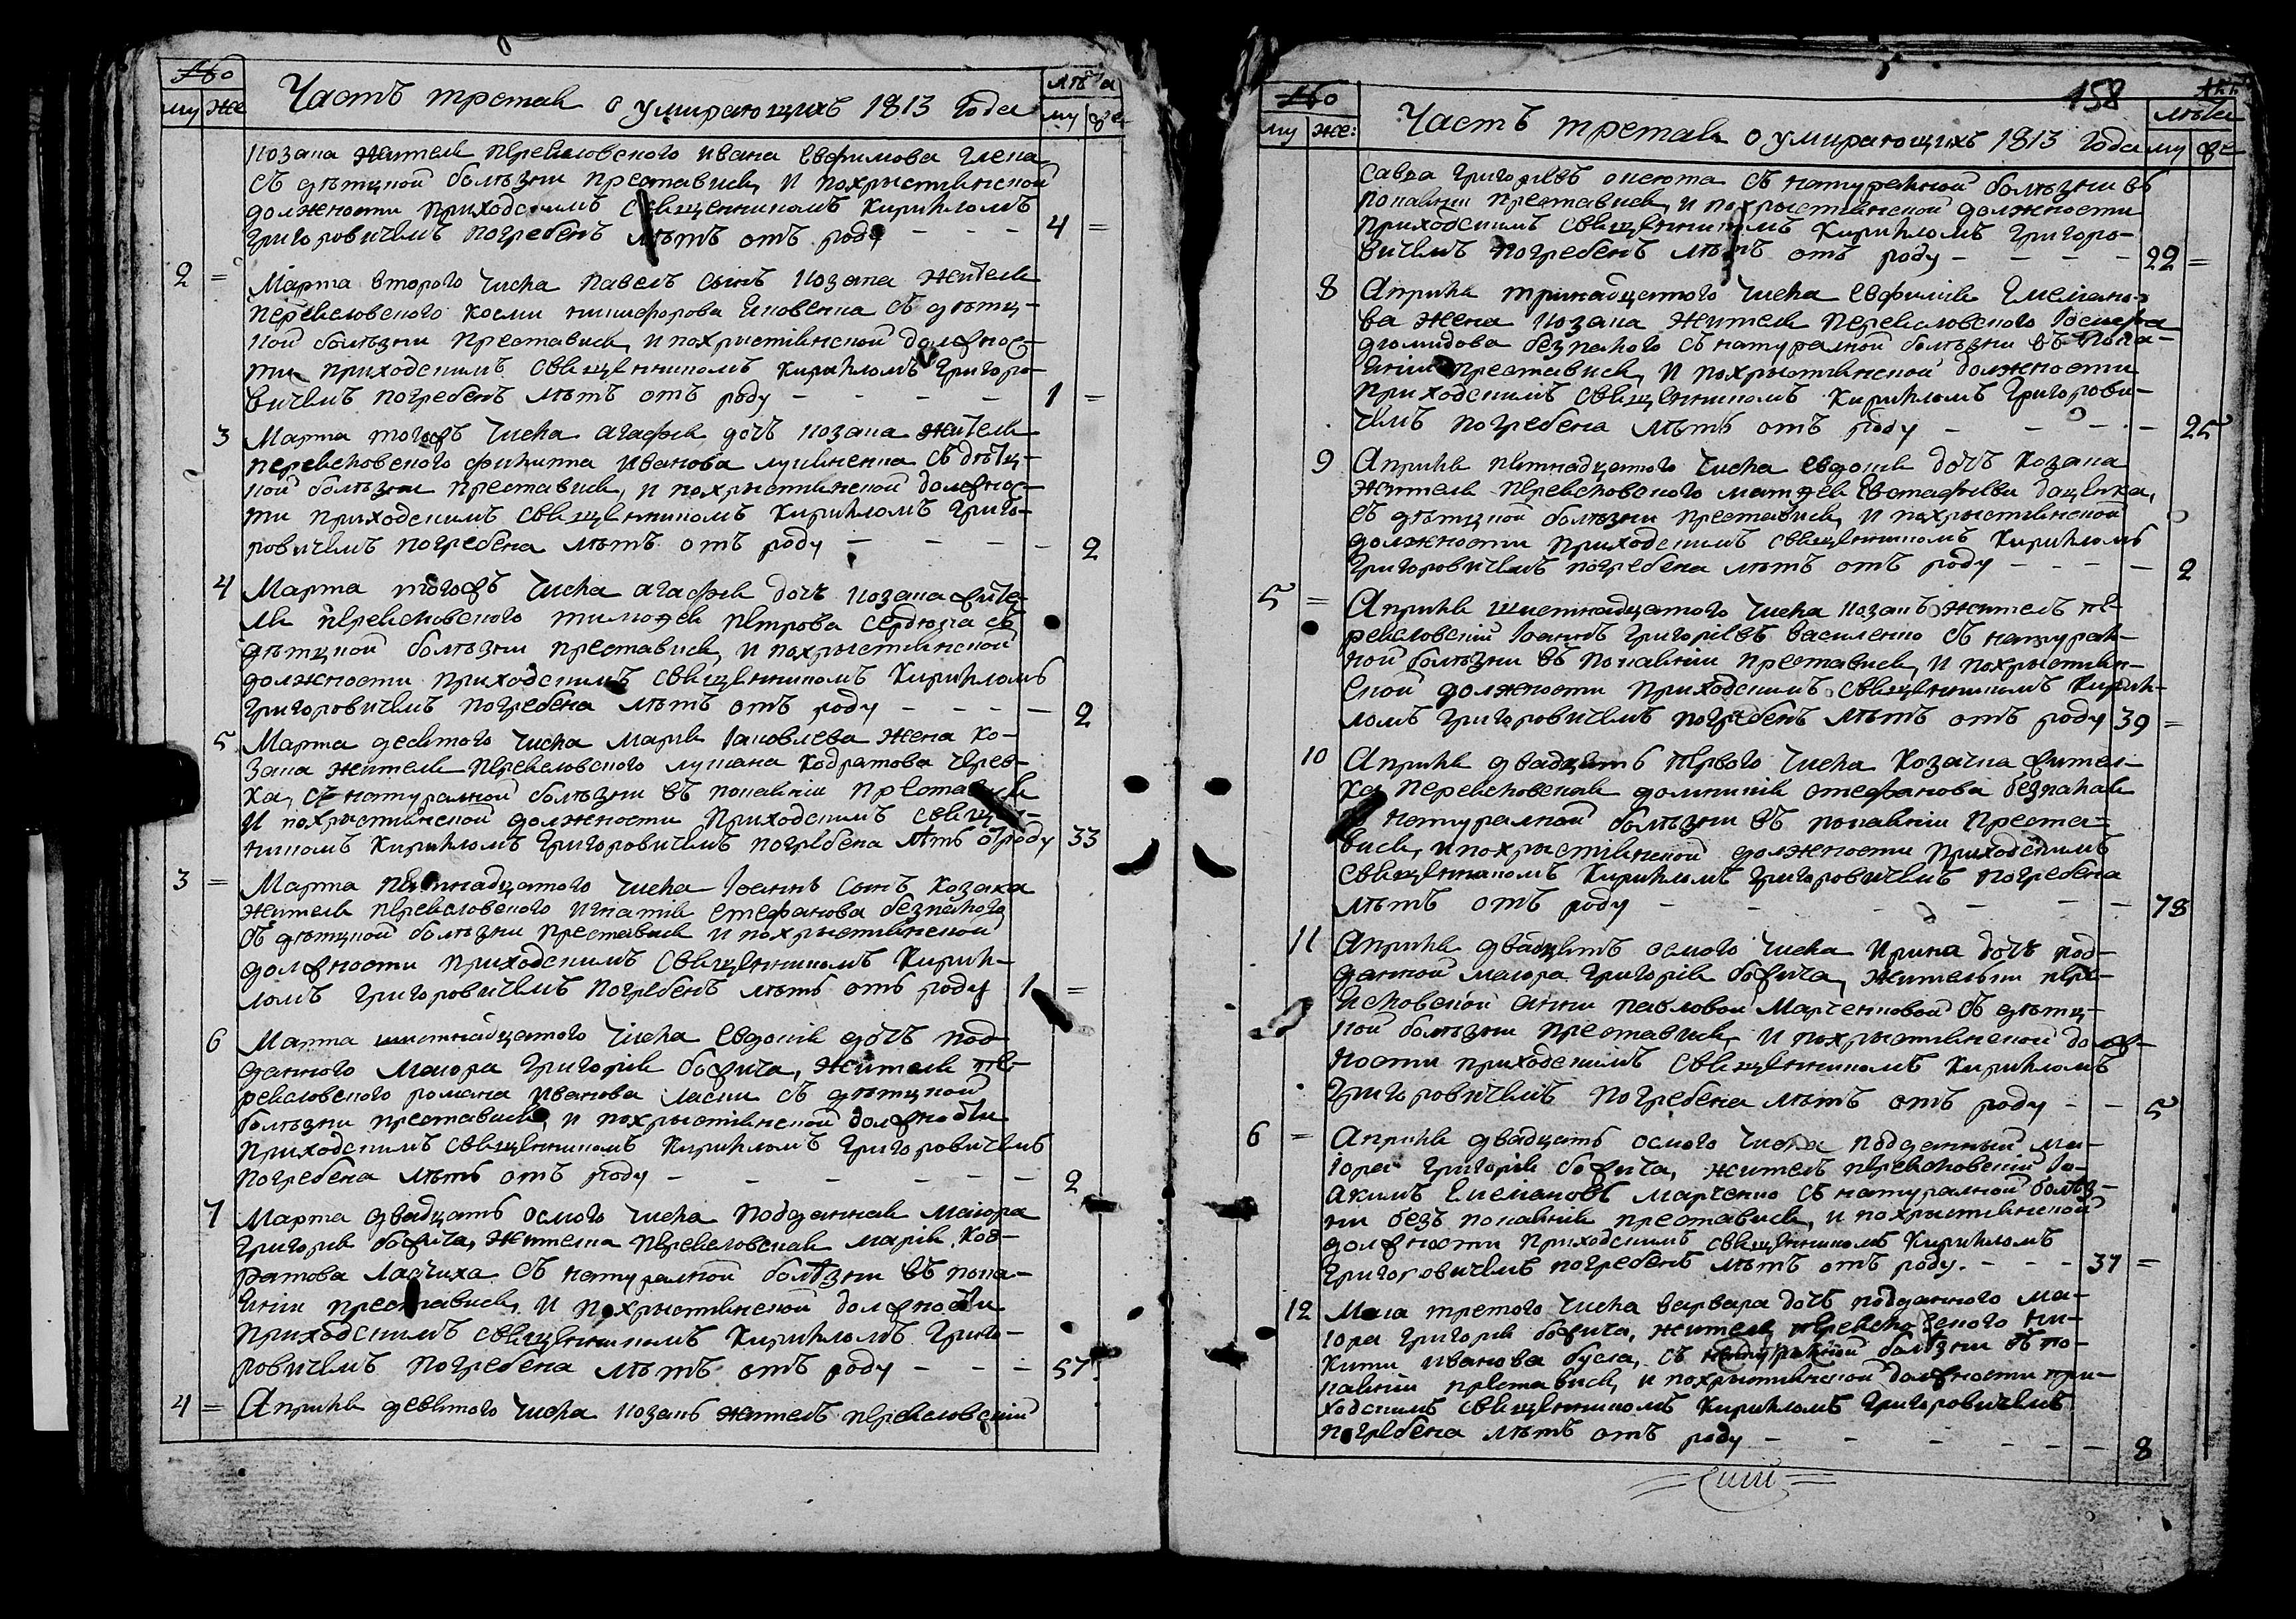 Часть третая о умирающихъ 1813 года
лѣта
му же
му же
козака жителя переяславского ивана евфимова
съ дѣтцкой болѣзни преставися, и похрыстиянской
должности приходскимъ священникомъ Кирилломъ
григоровичемъ погребенъ лѣтъ отъ роду - - - 4 =
2 = Марта второго числа павелъ сынъ козака жителя
съ дѣтц-
кой болѣзни преставися, и похристиянской должнос-
ти приходскимъ священникомъ кирилломъ григоро-
вичемъ погребенъ лѣтъ отъ роду - - - - 1 =
3 Марта тогожъ числа агафия дочь козака жителя
филиппа иванова съ дѣтц-
кой болѣзни преставися, и похрыстиянской должнос-
ти приходскимъ священникомъ кирилломъ григо-
ровичемъ погребена лѣтъ отъ роду - - - - 2
4 Марта тогожъ числа агафия дочь козака жите-
ля тимофея петрова сердюка съ
дѣтцкой болѣзни преставися, и похрыстиянской
должности приходскимъ священникомъ Кирилломъ
григоровичемъ погребена лѣтъ отъ роду - - - - 2
5 Марта десятого числа мария Іаковлева жена ко-
зака жителя лукана кодратова
ка, съ натуралной болѣзни въ покаянии преставися
и похристиянской должности приходскимъ священ-
никомъ кирилломъ григоровичемъ погребена лѣтъ отроду 33
3 = Марта пятнадцатого числа Іоаннъ сынъ козака
жителя игнатия стефанова безпалого
съ дѣтцкой болѣзни преставися и похрыстиянской
должности приходскимъ священникомъ Кирил-
ломъ григоровичемъ погребенъ лѣтъ отъ роду 1 =
6 Марта шистнадцатого числа евдокия дочь под-
данного маиора григория божича, жителя пе-
романа иванова съ дѣтцкой
болѣзни преставися, и похрыстиянской должности
приходскимъ священникомъ Кирилломъ григоровичемъ
погребена лѣтъ отъ роду - - - - - - 2
7 Марта двадцать осмого числа подданная маиора
григория божича, жителка мария код-
ратова съ натуралной болѣзни въ пока-
янии преставися, и похрыстиянской должности
приходскимъ священникомъ Кирилломъ григо-
ровичемъ погребена лѣтъ отъ роду - - - 57
4 = Априля девятого числа козакъ житель
158
Часть третая о умирающихъ 1813 года
лѣта
му же:
му же
савва григориевъ съ натуралной болѣзни въ
покаянии преставися, и похрыстиянской должности
приходскимъ священникомъ Кирилломъ григоро-
вичемъ погребенъ лѣтъ отъ роду - - - - 22 =
8 Априля тринадцатого числа евфимия емелиано-
ва жена козака жителя Іосифа
диомидова безпалого съ натуралной болѣзни въ пока-
янии преставися, и похрыстиянской должности
приходскимъ священникомъ Кирилломъ григорови-
чемъ погребена лѣтъ отъ роду - - - - 25
9 Априля пятнадцатого числа евдокия дочь козака
жителя матфея евстафиева даценка,
съ дѣтцкой болѣзни преставися, и похрыстиянской
должности приходскимъ священникомъ Кирилломъ
григоровичемъ погребена лѣтъ отъ роду - - - - 2
5 = Априля шистнадцатого числа козакъ житель пе-
Іоаннъ григориевъ василенко съ натурал-
ной болѣзни въ покаянии преставися, и похрыстиян-
ской должности приходскимъ священникомъ Кирил-
ломъ григоровичемъ погребенъ лѣтъ отъ роду 39 =
10 Априля двадцать первого числа козачка жител-
ка домникия стефанова безпалая
съ натуралной болѣзни въ покаянии преста-
вися, и похрыстиянской должности приходскимъ
священникомъ Кирилломъ григоровичемъ погребена
лѣтъ отъ роду - - - - - - 78
11 Априля двадцать осмого числа ирина дочь под-
данной маиора григория божича, жителки пере-
анни павловой марченковой съ дѣтц-
кой болѣзни преставися, и похрыстиянской долж-
ности приходскимъ священникомъ Кирилломъ
григоровичемъ погребена лѣтъ отъ роду - - 5
6 = Априля двадцать осмого числа подданный ма-
иора григория божича, житель Іо-
акимъ емелиановъ марченко съ натуралной болѣз-
ни безъ покаяния преставися, и похрыстиянской
должности приходскимъ священникомъ Кирилломъ
григоровичемъ погребенъ лѣтъ отъ роду. - - - 37 =
12 Маиа третого числа варвара дочь подданного ма-
иора григория божича, жителя ни-
кити иванова бусла, съ натуралной болѣзни въ по-
каянии преставися, и похрыстиянской должности при-
ходскимъ священникомъ Кирилломъ григоровичемъ
погребена лѣтъ отъ роду - - - - - - 8